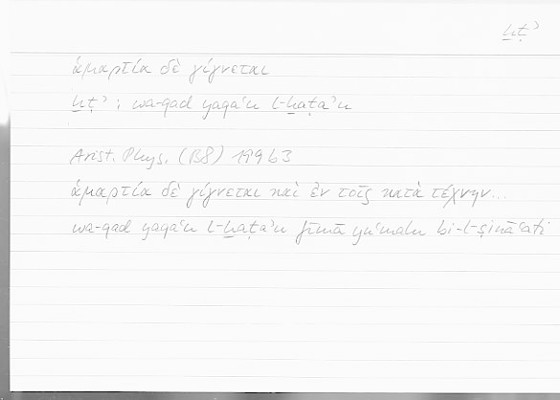 ḫṭʾ
ἁμαρτία δὲ γίγνεται
ḫṭʾ : wa-qad yaqaʿu l-ḫaṭaʾu
Arist. Phys. (B8) 199 b3
ἁμαρτία δὲ γίγνεται καὶ ἐν τοῖς κατὰ τέχνην...
wa-qad yaqaʿu l-ḫaṭaʾu fīmā yuʿmalu bi-l-ṣināʿati